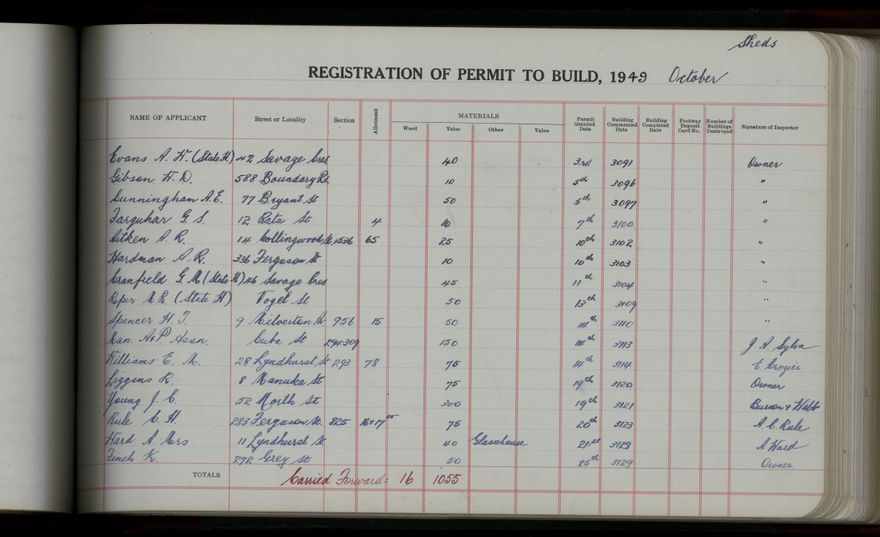 Sheds
REGISTRATION OF PERMIT TO BUILD, 1949 October
NAME OF APPLICANT Street or Locality Section Allotment MATERIALS Permit Granted Date Building Commenced Date Building Completed Date Footway Deposit Card No. Number of Buildings Destroyed Signature of Inspector
Wood Value Other Value
Evans A. H. (State H) 42 Savage Cres 40 3rd 3091 Owner
Gibson H. D. 588 Boundary Rd 10 5th 3096 "
Cunningham A. E. 77 Bryant St 50 5th 3097 "
Farquhar G. S. 12 Rata St 4 10 7th 3100 "
Aitken A. R. 14 Collingwood St 1536 65 25 10th 3102 "
Hardman A. R. 336 Ferguson St 10 10th 3103 "
Cranfield G. M (State H) 46 Savage Cres 45 11th 3104 "
Roper M R (State H) Fogel St 50 13th 3109 "
Spencer H. J. 9 Milverton St 956 15 50 14th 3110 "
Man. A & P Assn. Cuba St 294-309 150 14th 3113 J A Sylva
Williams E. M. 28 Lyndhurst St 293 78 75 14th 3114 E Crozier
Liggins K. 8 Manuka St 75 19th 3120 Owner
Young J. C. 52 North St 300 19th 3121
Rule C. H. 283 Ferguson St. 825 16+17 75 20th 3123 A. C. Rule
Ward A Mrs 11 Lyndhurst St 40 Glasshouse 21st 3128 A Ward
Finch K. 272 Grey St 50 25th 3129 Owner
TOTALS Carried Forward: 16 1055